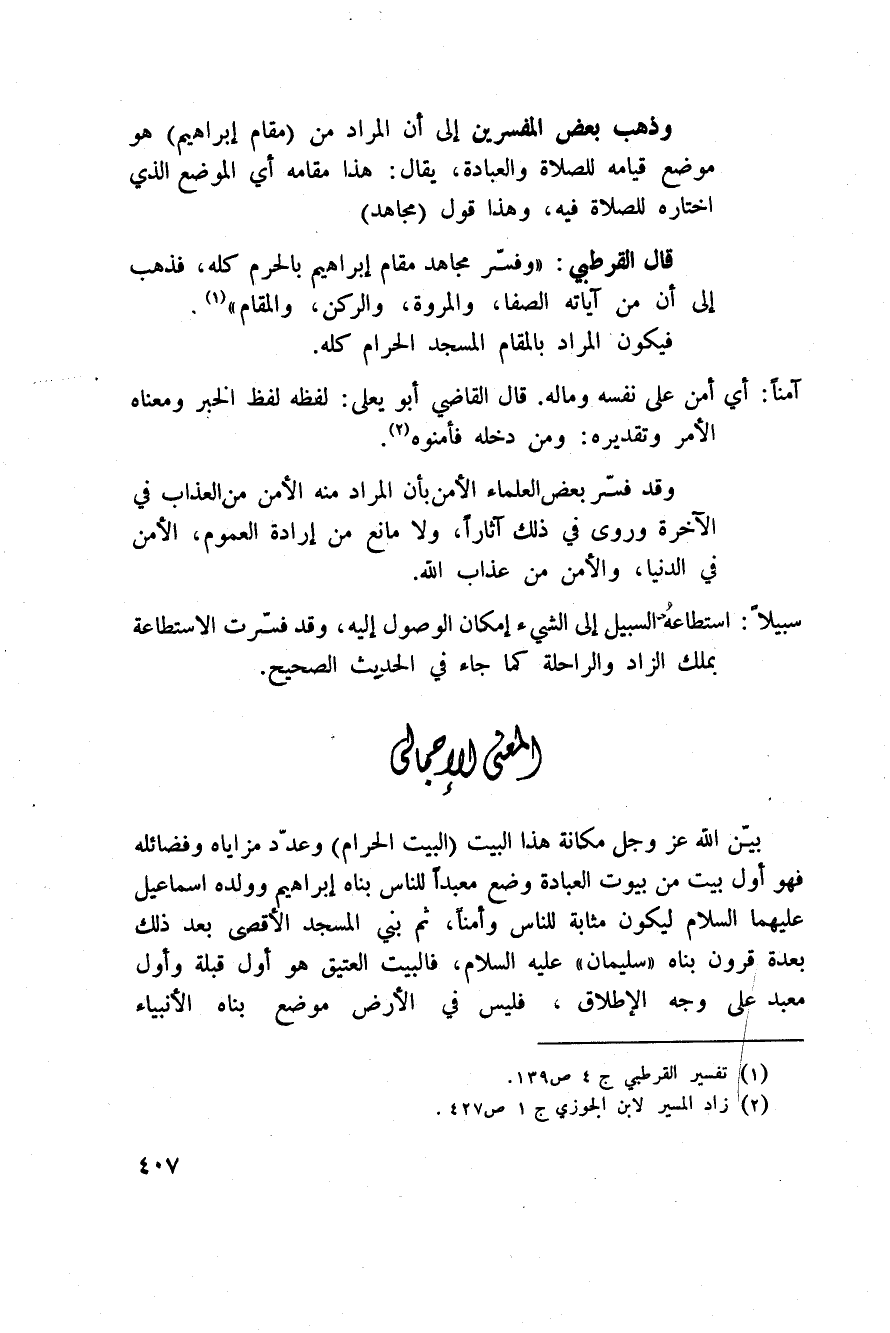 وذهب بعض المفسرين إلى أن المراد من (مقام إبراهيم) هو
موضع قيامه للصلاة والعبادة، يقال: هذا مقامه أي الموضع الذي
اختاره للصلاة فيه، وهذا قول (مجاهد)
قال القرطبي: «وفسّر مجاهد مقام إبراهيم بالحرم كله، فذهب
إلى أن من آياته الصفا، والمروة، والركن، والمقام»(١).
فيكون المراد بالمقام المسجد الحرام كله.
آمناً: أي أمن على نفسه وماله. قال القاضي أبو يعلى: لفظه لفظ الخبر ومعناه
الأمر وتقديره: ومن دخله فأمنوه(٢).
وقد فسّر بعض العلماء الأمن بأن المراد منه الأمن من العذاب في
الآخرة وروى في ذلك آثاراً، ولا مانع من إرادة العموم، الأمن
في الدنيا، والأمن من عذاب الله.
سبيلاً: استطاعهُ السبيل إلى الشيء إمكان الوصول إليه، وقد فسّرت الاستطاعة
بملك الزاد والراحلة كما جاء في الحديث الصحيح.
المعنى الإجمالي
بيّن الله عز وجل مكانة هذا البيت (البيت الحرام) وعدّد مزاياه وفضائله
فهو أول بيت من بيوت العبادة وضع معبداً للناس بناه إبراهيم وولده اسماعيل
عليهما السلام ليكون مثابة للناس وأمناً، ثم بني المسجد الأقصى بعد ذلك
بعدة قرون بناه «سليمان» عليه السلام، فالبيت العتيق هو أول قبلة وأول
معبد على وجه الإطلاق ، فليس في الأرض موضع بناه الأنبياء
(١) تفسير القرطبي ج ٤ ص١٣٩.
(٢) زاد المسير لابن الجوزي ج ١ ص٤٢٧.
٤٠٧